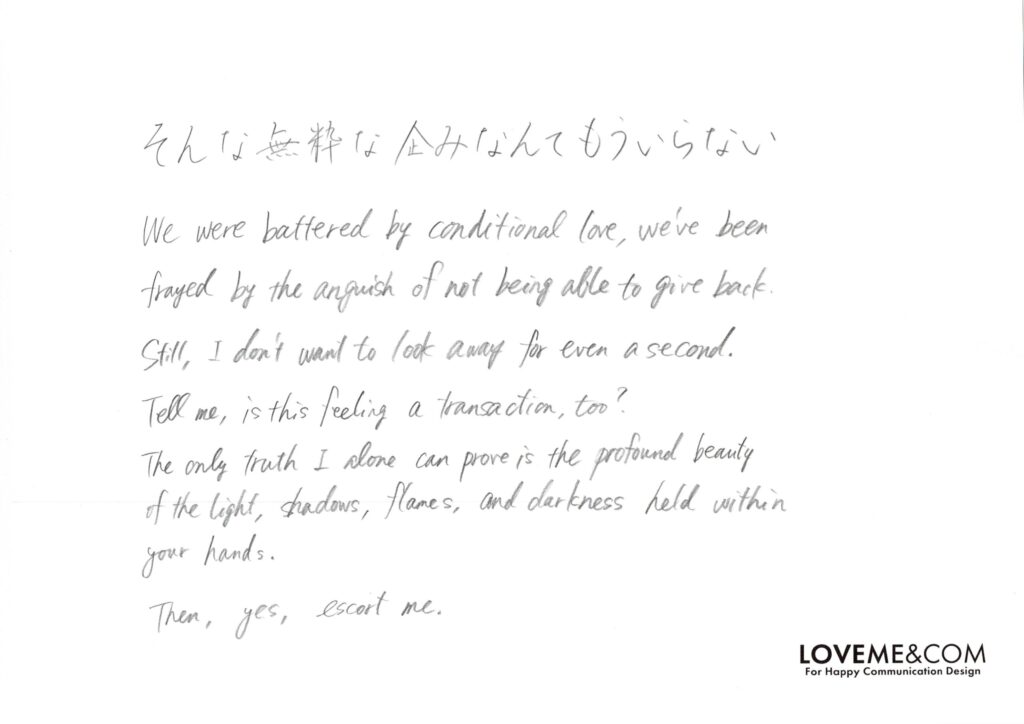 そんな無粋な企みなんてもういらない
We were battered by conditional love, we've been
frayed by the anguish of not being able to give back.
Still, I don't want to look away for even a second.
Tell me, is this feeling a transaction, too?
The only truth I alone can prove is the profound beauty
of the light, shadows, flames, and darkness held within
your hands.
Then, yes, escort me.
LOVEME&COM
For Happy Communication Design